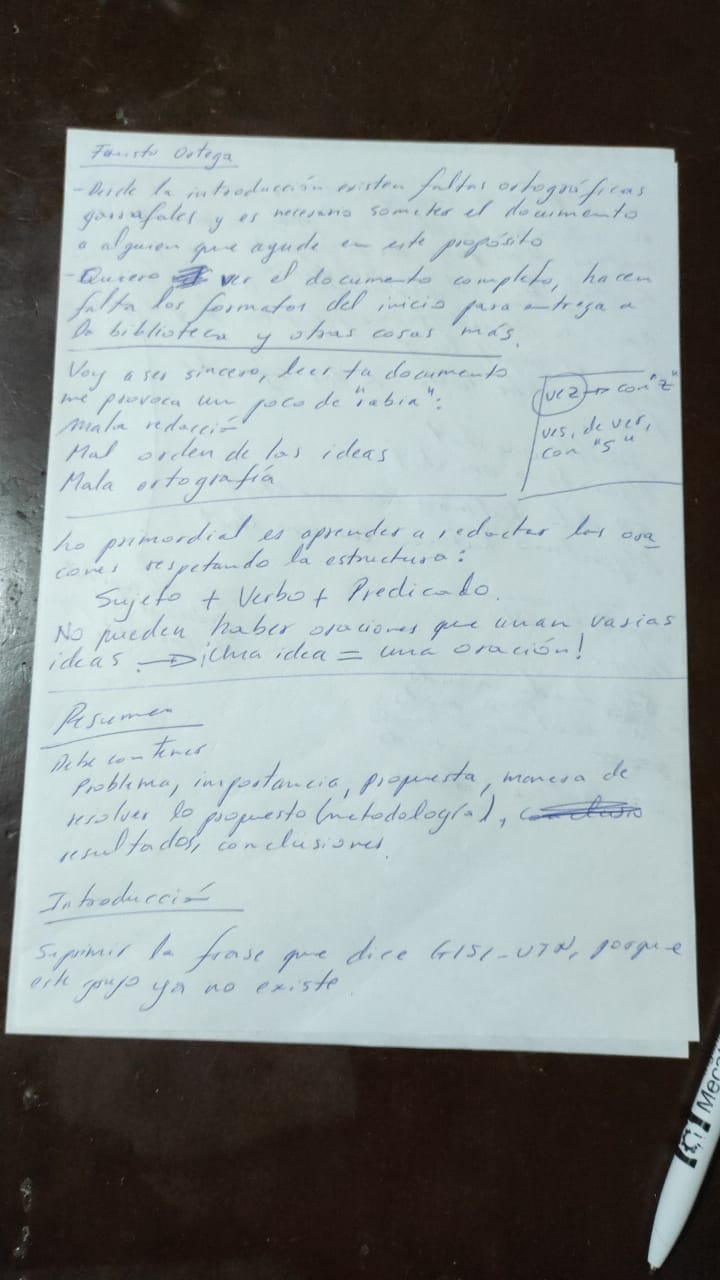 Fausto Ortega
- Desde la introducción existen faltas ortográficas
garrafales y es necesario someter el documento
a alguien que ayude en este propósito
- Quiero ver el documento completo, hacen
falta los formatos del inicio para entrega a
la biblioteca y otras cosas más.
Voy a ser sincero, leer tu documento
me provoca un poco de "rabia":
Mala redacción
Mal orden de las ideas
Mala ortografía
vez → con "z"
ves, de ver,
con "s"
Lo primordial es aprender a redactar las ora
ciones respetando la estructura:
Sujeto + Verbo + Predicado.
No pueden haber oraciones que unan varias
ideas. → ¡Una idea = una oración!
Resumen
Debe contener
Problema, importancia, propuesta, manera de
resolver lo propuesto (metodología),
resultados, conclusiones.
Introducción
Suprimir la frase que dice GISI-UTN, porque
este grupo ya no existe.